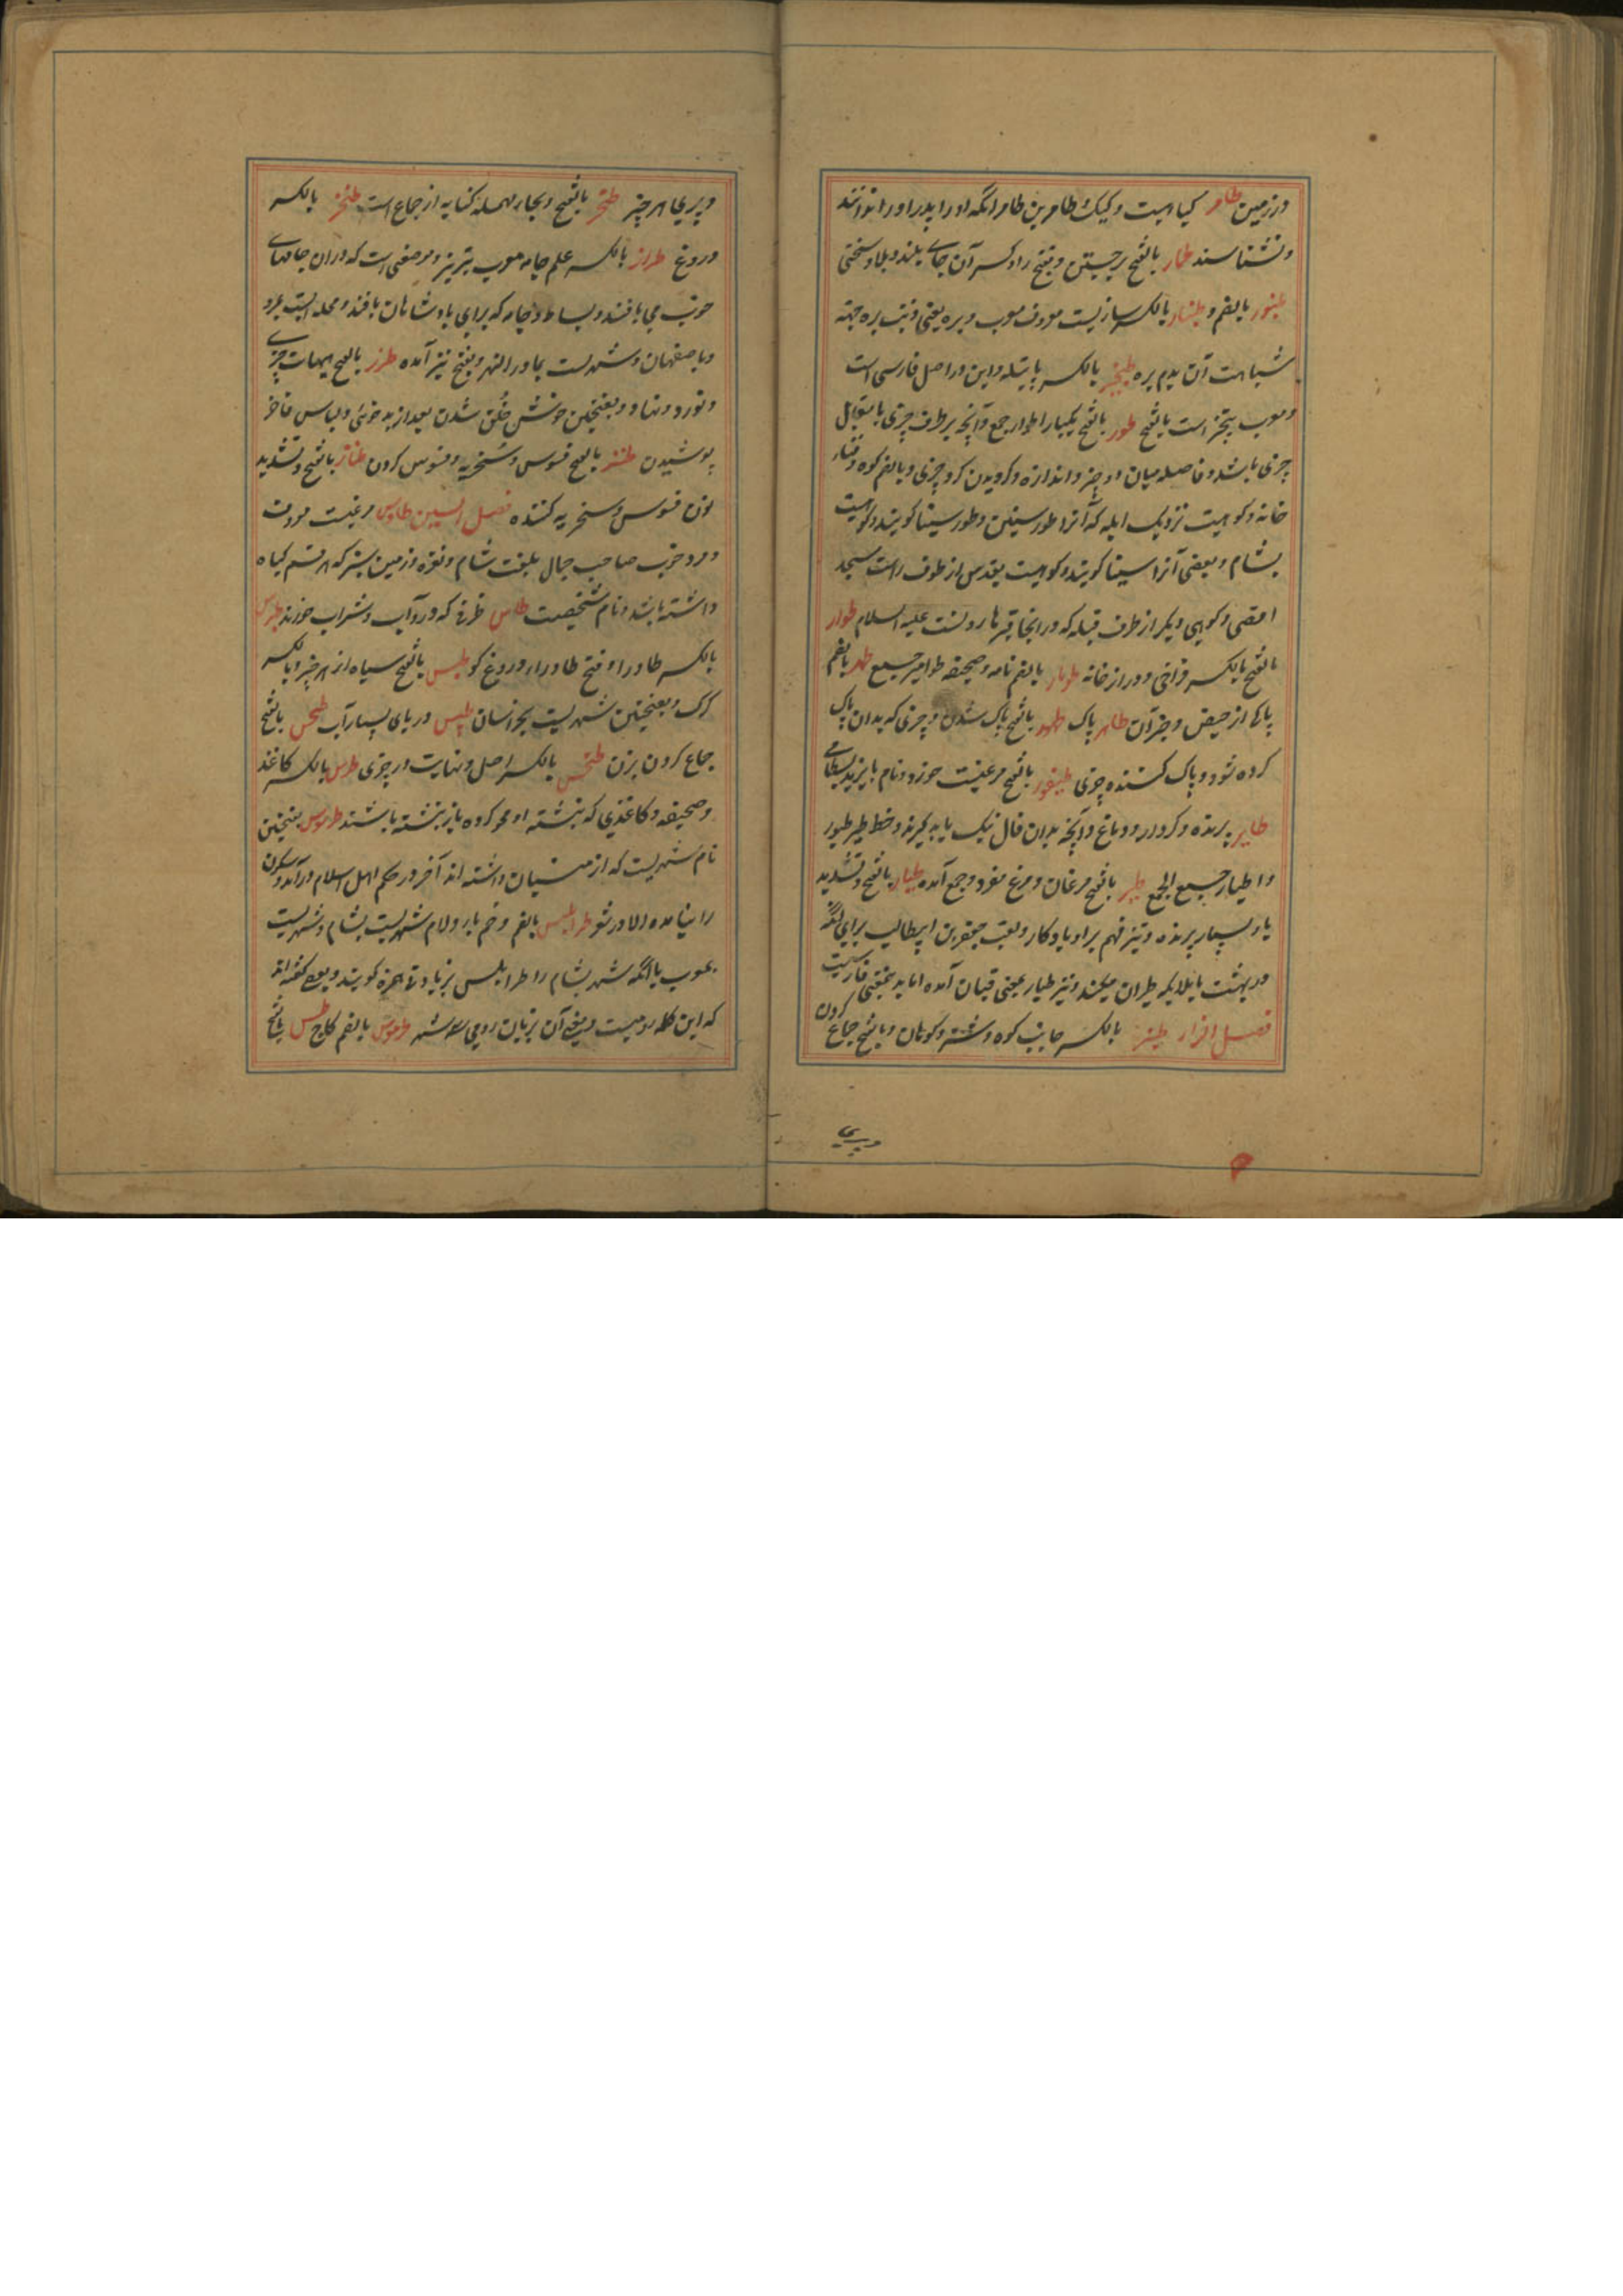 در زمین طامر کیاهیست و کیک طامر بن طامر انکه او را و پدر او را ندانند
و نشناسند طمار بالفتح برجستن و بفتح را و کسر آن جای بلند و بلا و سختی
طنبور بالضم و طنبار بالکسر سازیست معروف معرب دنبه بره یعنی دنب بره جهة
شباهت آن بدم بره طنجیر بالکسر پاتیله و این در اصل فارسی است
و معرب است بالفتح طور بالفتح یکبار اطوار جمع و آنچه بر طرف چیزی یا مقابل
چیزی باشد و فاصله میان دو چیز و اندازه و کردیدن کرد چیزی و بالضم کوه و فنای
خانه و کوهیست نزدیک ایله که آنرا طور سینین و طور سینا کویند و کوهیست
بشام و بعضی آنرا سینا کویند و کوهیست بقدس از طرف راست مسجد
اقصی و کوهی دیکر از طرف قبله که در آنجا قبر هارونست علیه السلام طوار
بالفتح بالکسر فراخی و دراز خانه طومار بالضم نامه و صحیفه طوامیر جمع طهر بالضم
پاکی از حیض و جز آن طاهر پاک طهور بالفتح پاک شدن و چیزی که بدان پاک
کرده شود و پاک کننده چیزی طیفور بالفتح مرغیست خورد و نام بایزید بسطامی
طایر پرنده و کردار و دماغ و آنچه بدان فال نیک یا بد کیرند و خط طیر طیور
و اطیار جمع الجمع طیر بالفتح مرغان و مرغ مفرد و جمع آمده طیار بالفتح و تشدید
یا بسیار پرنده و تیز فهم و لقب جعفر بن ابیطالب برای آنکه
در بهشت با ملایکه طیران میکند و نیز طیار بمعنی قپان آمده اما بدینمعنی فارسیست
فصل الزاء طنز بالکسر جانب کوه و شتر و کوهان و بالفتح جماع کردن
و پری هر چیز طحز بالفتح و بحاء مهمله کنایه از جماع است طخز بالکسر
دروغ طراز بالکسر علم جامه معرب تریز و موضعی است که دران جامهای
خوب می بافند و بساط و جامه که برای پادشاهان بافند و محله ایست بمرو
و باصفهان و شهریست بماوراء النهر و بفتح نیز آمده طرز بالفتح هیات چیزی
و بفتحتین خوش خلق شدن بعد از بدخوئی و لباس فاخر
پوشیدن طنز بالفتح فسوس و سخریه و فسوس کردن طناز بالفتح و تشدید
نون فسوس و سخریه کننده فصل السین طاوس مرغیست معروف
و مرد خوب صاحب جمال بلغت شام و نقره و زمین سبز که هر قسم کیاه
داشته باشد و نام شخصیست طاس ظرفی که درو آب و شراب خورند طبرس
بالکسر طا و را و فتح طا و را دروغ کو طبس بالفتح سیاه از هر چیز و بالکسر
کرک و بفتحتین شهریست بخراسان طبیس دریای بسیار آب طحس بالفتح
جماع کردن بزن طخس بالکسر اصل و نهایت در چیزی طرس بالکسر کاغذ
و صحیفه و کاغذی که نبشته او محو کرده باز نبشته باشند طرسوس بفتحتین
نام شهریست که ارمنیان داشته اند آخر در حکم اهل اسلام درآمد و سکون
را نیامده الا در شعر طرابلس بالضم و ضم با و لام شهریست بشام و شهریست
بمغرب یا آنکه شهر بشام را اطرابلس بزیادتی همزه کویند و بعضی کفته اند
که این کلمه رومیست و معنی آن بزبان رومی سه شهر طرموس بالضم کلاج طس بالفتح
و پری